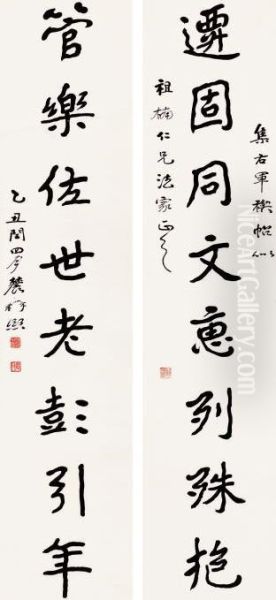 集右軍禊帖似
遷固同文惠列殊抱
祖楠仁兄法家正之
管樂佐世老彭引年
乙丑閏四月農髯熙
NiceArtGallery.com